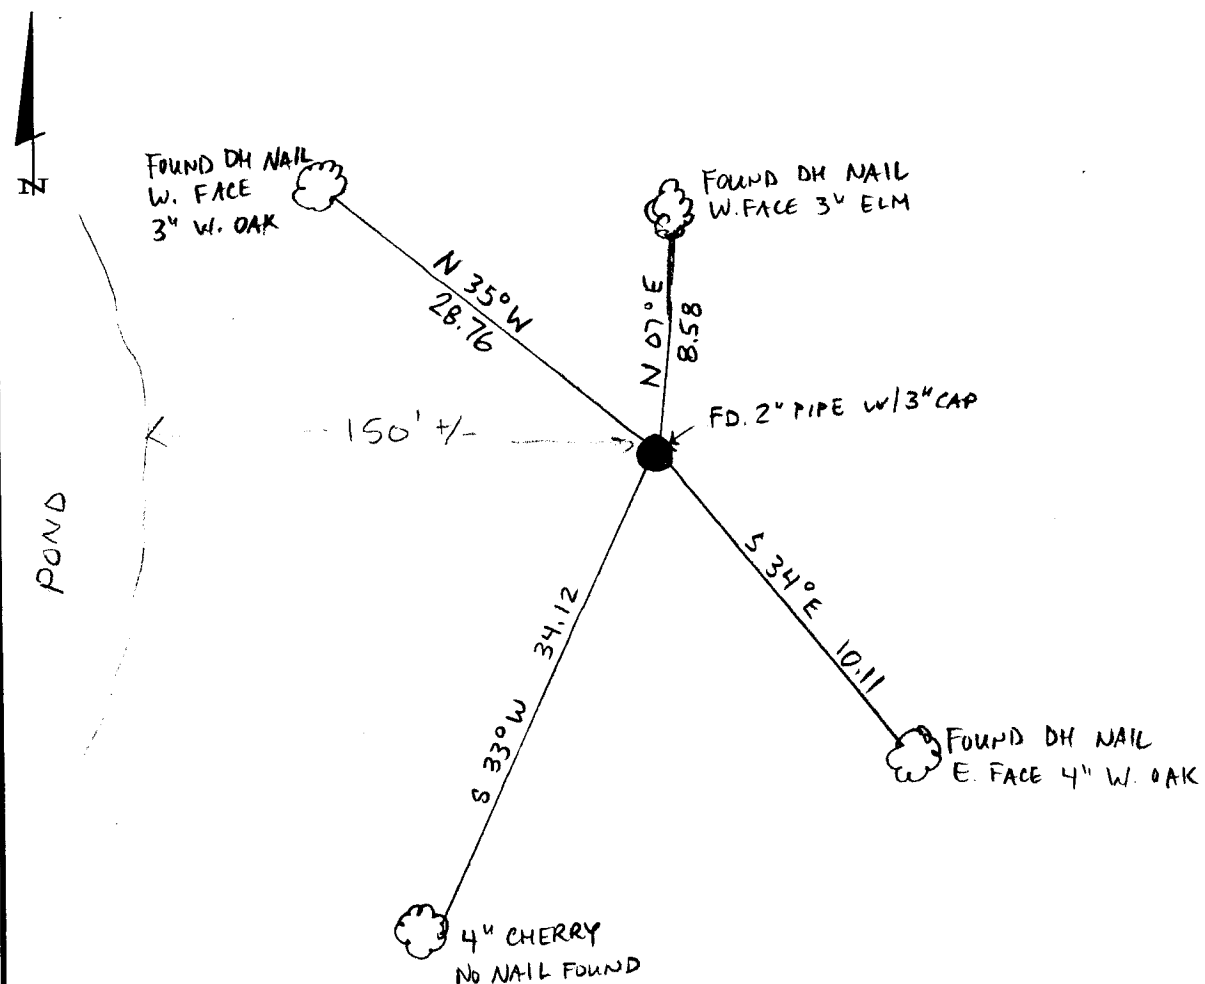 N
FOUND DH NAIL
W. FACE
3" W. OAK
FOUND DH NAIL
W. FACE 3" ELM
N 35° W
28.76
N 07° E
8.58
FD. 2" PIPE W/3" CAP
150' +/-
POND
S 34° E 10.11
S 33° W 34.12
FOUND DH NAIL
E. FACE 4" W. OAK
4" CHERRY
NO NAIL FOUND